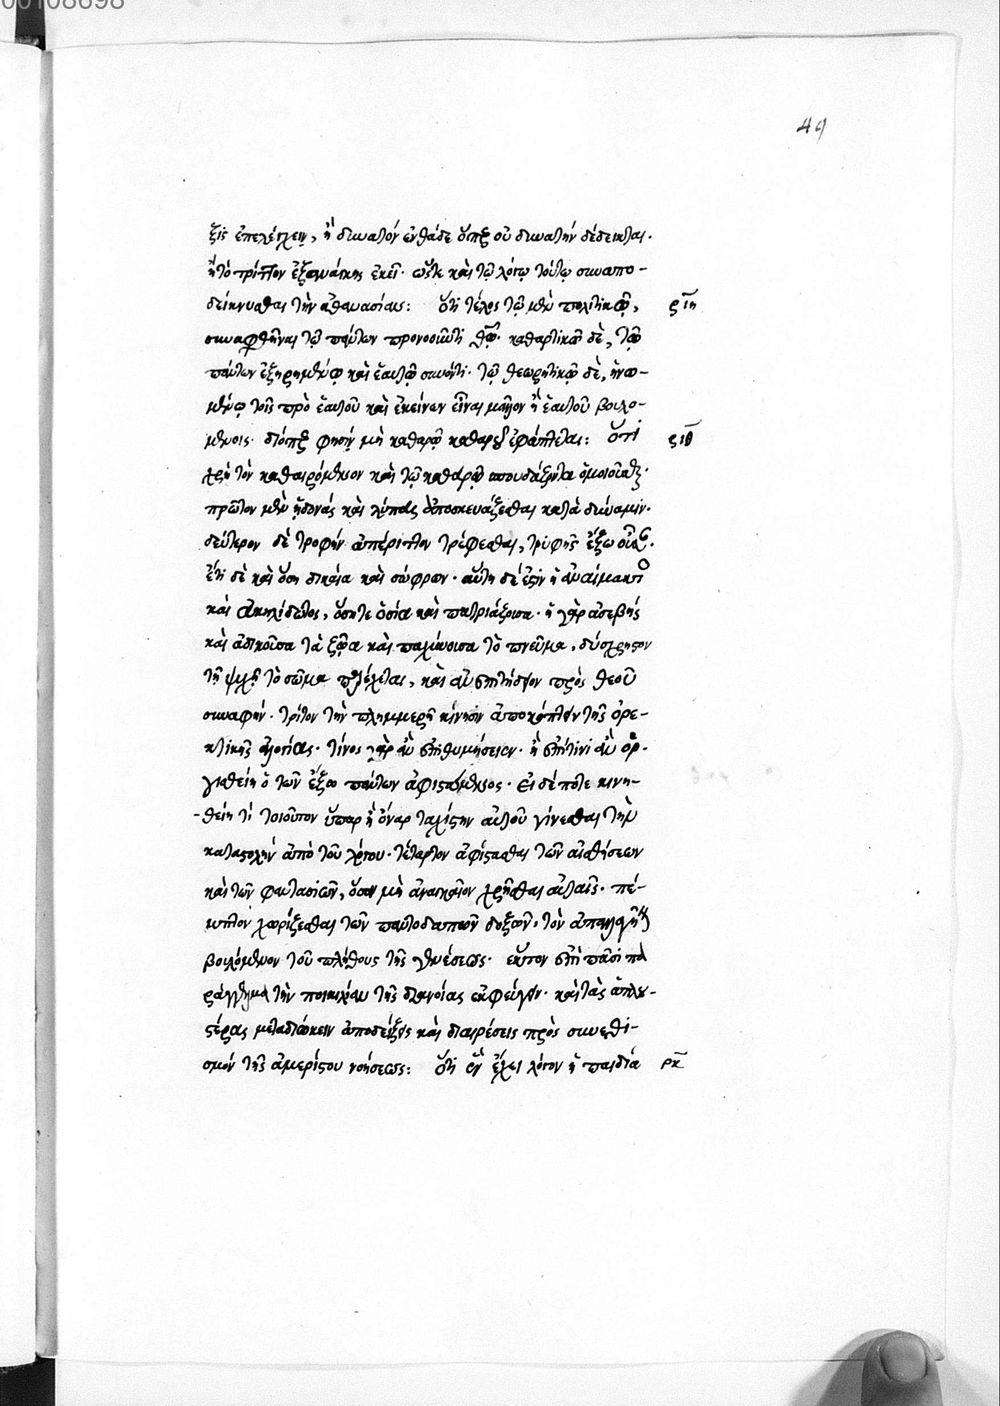 00108698
49
ξις ἐπελέγχειν, ἢ δυνατὸν ἐνθάδε ὅπερ οὐ δυνατὴν δέδεικται.
ἢ τὸ τρίτον ἐξ ἀνάγκης ἐκεῖ. ὥστε καὶ τῷ λόγῳ τούτῳ συναπο-
δείκνυσθαι τὴν ἀθανασίαν: ὅτι τέλος τῷ μὲν πολιτικῷ, ριη
συναφθῆναι τῷ πάντων προνοοῦντι θεῷ. καθαρτικῷ δὲ, τῷ
πάντων ἐξῃρημένῳ καὶ ἑαυτῷ συνόντι. τῷ θεωρητικῷ δὲ, ἡνω-
μένῳ τοῖς πρὸ ἑαυτοῦ καὶ ἐκείνων εἶναι μᾶλλον ἢ ἑαυτοῦ βουλο-
μένοις. διόπερ φησὶν μὴ καθαρῷ καθαροῦ ἐφάπτεσθαι: ὅτι ριθ
χρὴ τὸν καθαιρόμενον καὶ τῷ καθαρῷ σπουδάζοντα ὁμοιοῦσθαι.
πρῶτον μὲν ἡδονὰς καὶ λύπας ἀποσκευάζεσθαι κατὰ δύναμιν.
δεύτερον δὲ τροφὴν ἀπέριττον τρέφεσθαι, τρυφῆς ἔξω οὖσαν.
ἔτι δὲ καὶ ὅση δικαία καὶ σώφρων. αὕτη δέ ἐστιν ἡ ἀναίμακτος
καὶ ἀκηλίδωτος, ὅσητε ὁσία καὶ πατριάζουσα. ἡ γὰρ ἀσεβὴς
καὶ ἀδικοῦσα τὰ ζῷα καὶ παχύνουσα τὸ πνεῦμα, δύσχρηστον
τῇ ψυχῇ τὸ σῶμα παρέχεται, καὶ ἀνεπιτήδειον πρὸς θεοῦ
συναφήν. τρίτον τὴν πλημμερῆ κίνησιν ἀποκόπτειν τῆς ὀρε-
κτικῆς ἀλογίας. τίνος γὰρ ἂν ἐπιθυμήσειεν. ἢ ἐπὶ τίνι ἂν ὀρ-
γισθείη ὁ τῶν ἔξω πάντων ἀφιστάμενος. Εἰ δέ ποτε κινη-
θείη τι τοιοῦτον ὕπαρ ἢ ὄναρ ταχίστην αὐτοῦ γίνεσθαι τὴν
καταστολὴν ἀπὸ τοῦ λόγου. τέταρτον ἀφίστασθαι τῶν αἰσθήσεων
καὶ τῶν φαντασιῶν, ὅσον μὴ ἀναγκαῖον χρῆσθαι αὐταῖς. πέ-
μπτον χωρίζεσθαι τῶν παντοδαπῶν δοξῶν, τὸν ἀπαλλαγῆναι
βουλόμενον τοῦ πλήθους τῆς γενέσεως. ἕκτον ἐπὶ πᾶσι πα
ράγγελμα τὴν ποικιλίαν τῆς διανοίας ἐκφεύγειν. καὶ τὰς ἁπλου-
στέρας μεταδιώκειν ἀποδείξεις καὶ διαιρέσεις πρὸς συνεθι-
σμὸν τῆς ἀμερίστου νοήσεως: ὅτι ὃν ἔχει λόγον ἡ παιδία ρκ